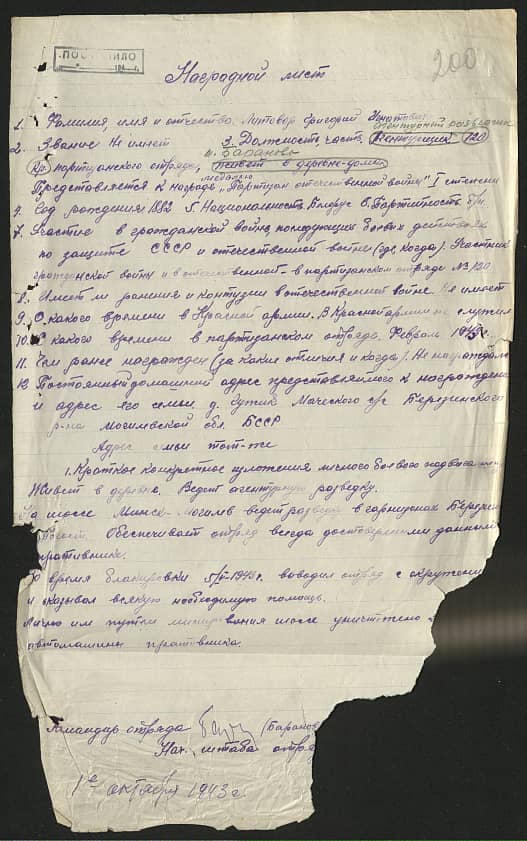 ПОСТУПИЛО
200
Наградной лист
1. Фамилия, имя и отчество. Литовор Григорий Игнатович
агентурный разведчик
2. Звание Не имеет 3. Должность, часть.
т. Баранова
партизанского отряда, живет в деревне-дома
Представляется к награде медалью „Партизан отечественной войны" I степени
4. Год рождения 1892 5. Национальность Белорус 6. Партийность б/п.
7. Участие в гражданской войне, последующих боевых действиях
по защите СССР и отечественной войны (где, когда). Участник
гражданской войны и в отечественной - в партизанском отряде №120
8. Имеет ли ранения и контузии в отечественной войне. Не имеет
9. С какого времени в Красной армии. В Красной армии не служил
10. С какого времени в партизанском отряде. Февраль 1943г.
11. Чем ранее награжден (за какие отличия и когда). Не награждался
12. Постоянный домашний адрес представляемого к награждению
и адрес его семьи, д. Мачесского с/с Березинского
р-на Могилевской обл. БССР
Адрес семьи тот-же
1. Краткое конкретное изложения личного боевого подвига
Живет в деревне. Ведет агентурную разведку.
На шоссе Минск-Могилев ведет разведку в гарнизонах Березин
Погост. Обеспечивает отряд всегда достоверными данными
противнике.
Во время блокировки 1943г. выводил отряд с окружени
и оказывал всякую необходимую помощь.
Лично им путем минирования шоссе уничтожено
автомашины противника.
Командир отряда (Баранов
Нач. штаба отря
1е октября 1943г.